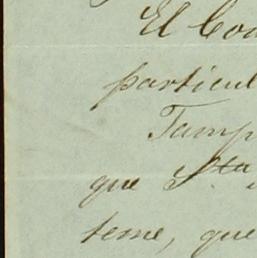 El Coa
particul
Tamp
que Sta
teme, que